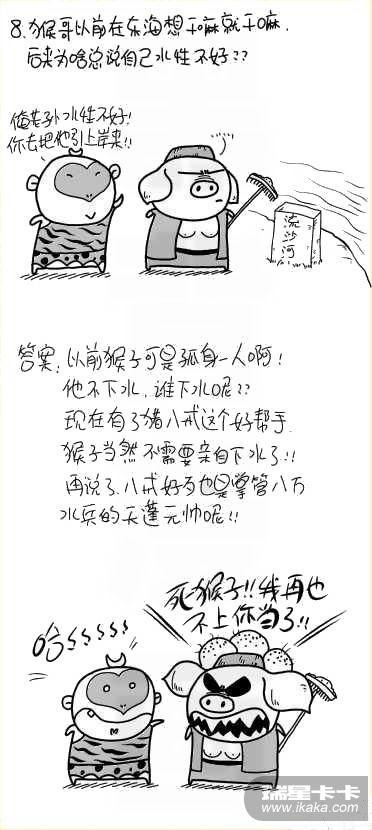 8.猴哥以前在东海想干嘛就干嘛.
后来为啥总说自己水性不好??
俺老孙水性不好!
你去把他引上岸来!!
流沙河
答案:以前猴子可是孤身一人啊!
他不下水,谁下水呢??
现在有了猪八戒这个好帮手.
猴子当然不需要亲自下水了!!
再说了,八戒好歹也是掌管八万
水兵的天蓬元帅呢!!
死猴子!!我再也
不上你当了!!
哈SSSSS
瑞星卡卡
www.ikaka.com